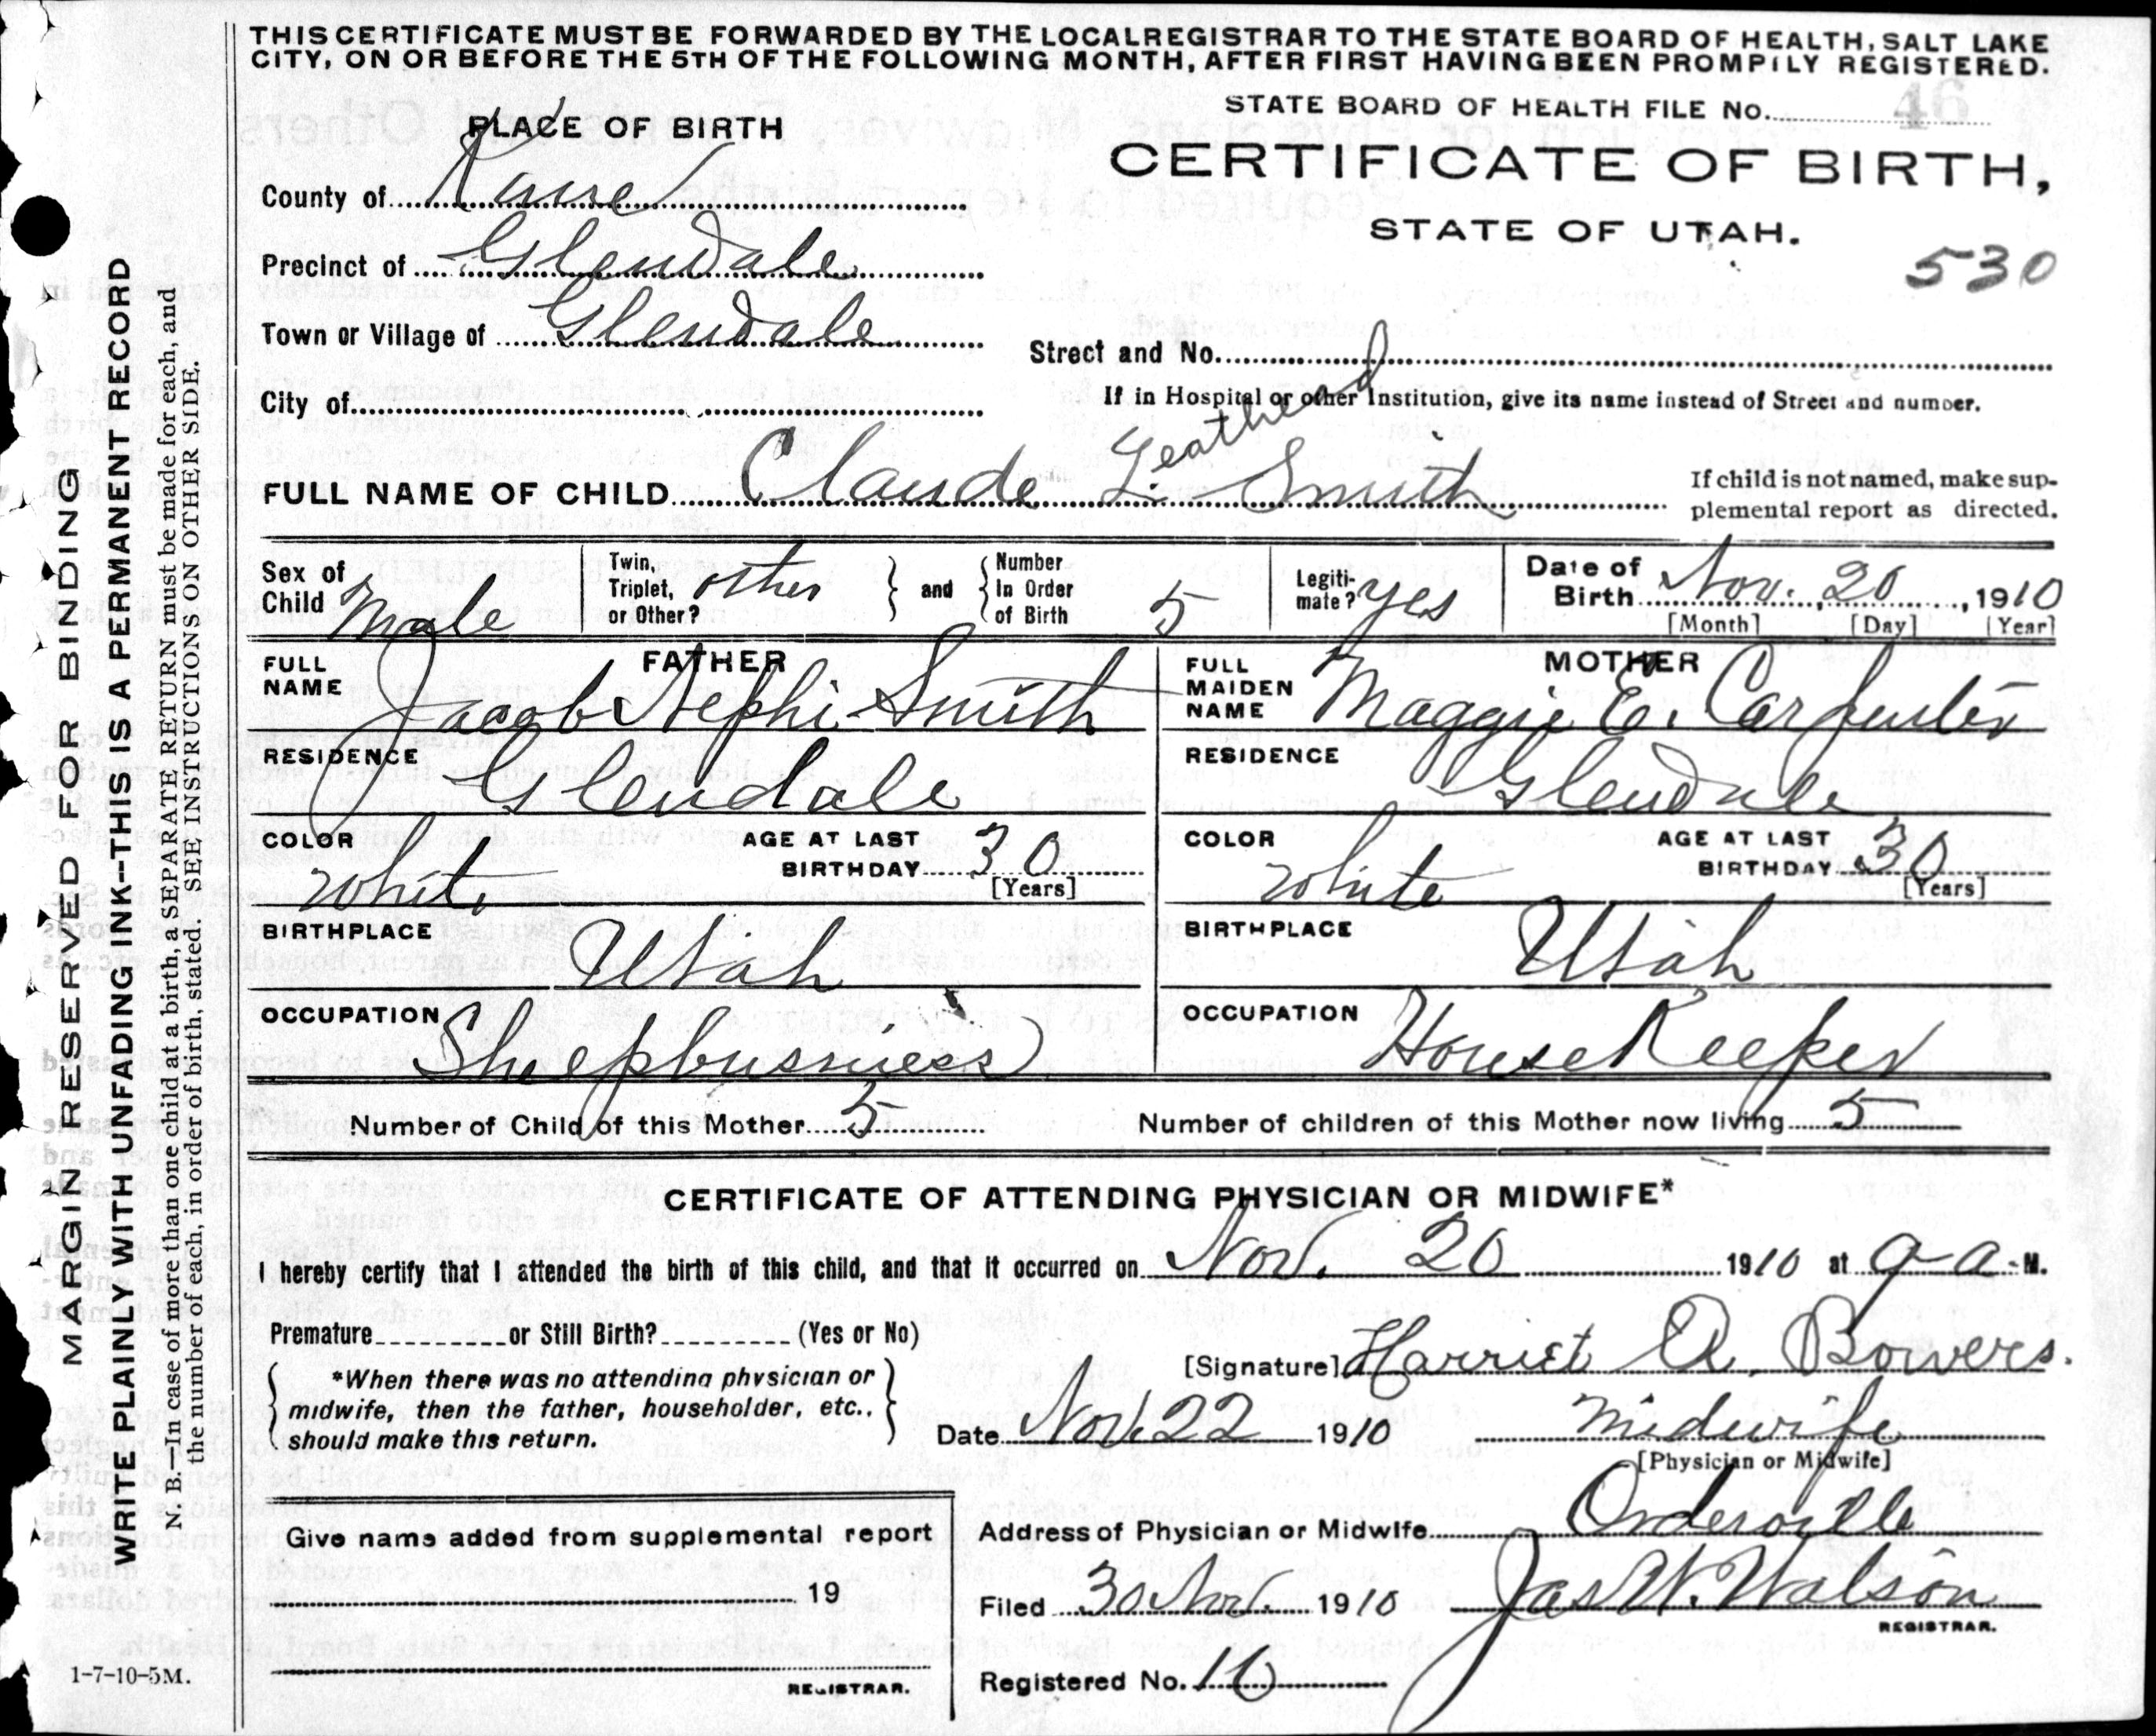 THIS CERTIFICATE MUST BE FORWARDED BY THE LOCAL REGISTRAR TO THE STATE BOARD OF HEALTH, SALT LAKE
CITY, ON OR BEFORE THE 5TH OF THE FOLLOWING MONTH, AFTER FIRST HAVING BEEN PROMPTLY REGISTERED.
STATE BOARD OF HEALTH FILE No. 46
PLACE OF BIRTH
CERTIFICATE OF BIRTH,
STATE OF UTAH.
530
County of Kane
Precinct of Glendale
Town or Village of Glendale
Street and No.
City of
If in Hospital or other Institution, give its name instead of Street and number.
Leatherd
FULL NAME OF CHILD Claude L. Smith
If child is not named, make sup-
plemental report as directed.
Sex of Child Male
Twin, Triplet, or Other? other
and Number In Order of Birth 5
Legiti-mate? yes
Date of Birth Nov. 20, 1910
[Month] [Day] [Year]
FATHER
FULL NAME Jacob Nephi Smith
MOTHER
FULL MAIDEN NAME Maggie E. Carpenter
RESIDENCE Glendale
RESIDENCE Glendale
COLOR White AGE AT LAST BIRTHDAY 30 [Years]
COLOR White AGE AT LAST BIRTHDAY 30 [Years]
BIRTHPLACE Utah
BIRTHPLACE Utah
OCCUPATION Sheepbusiness
OCCUPATION HouseKeeper
Number of Child of this Mother 5 Number of children of this Mother now living 5
CERTIFICATE OF ATTENDING PHYSICIAN OR MIDWIFE*
I hereby certify that I attended the birth of this child, and that it occurred on Nov. 20 1910 at 9 a M.
Premature or Still Birth? (Yes or No)
[Signature] Harriet A. Bowers.
*When there was no attending physician or
midwife, then the father, householder, etc.,
should make this return.
Date Nov. 22 1910 Midwife
[Physician or Midwife]
Give name added from supplemental report
19
REGISTRAR.
Address of Physician or Midwife Orderville
Filed 30 Nov. 1910 Jas W. Watson
REGISTRAR.
Registered No. 10
1-7-10-5M.
MARGIN RESERVED FOR BINDING
WRITE PLAINLY WITH UNFADING INK--THIS IS A PERMANENT RECORD
N. B.—In case of more than one child at a birth, a SEPARATE RETURN must be made for each, and
the number of each, in order of birth, stated. SEE INSTRUCTIONS ON OTHER SIDE.